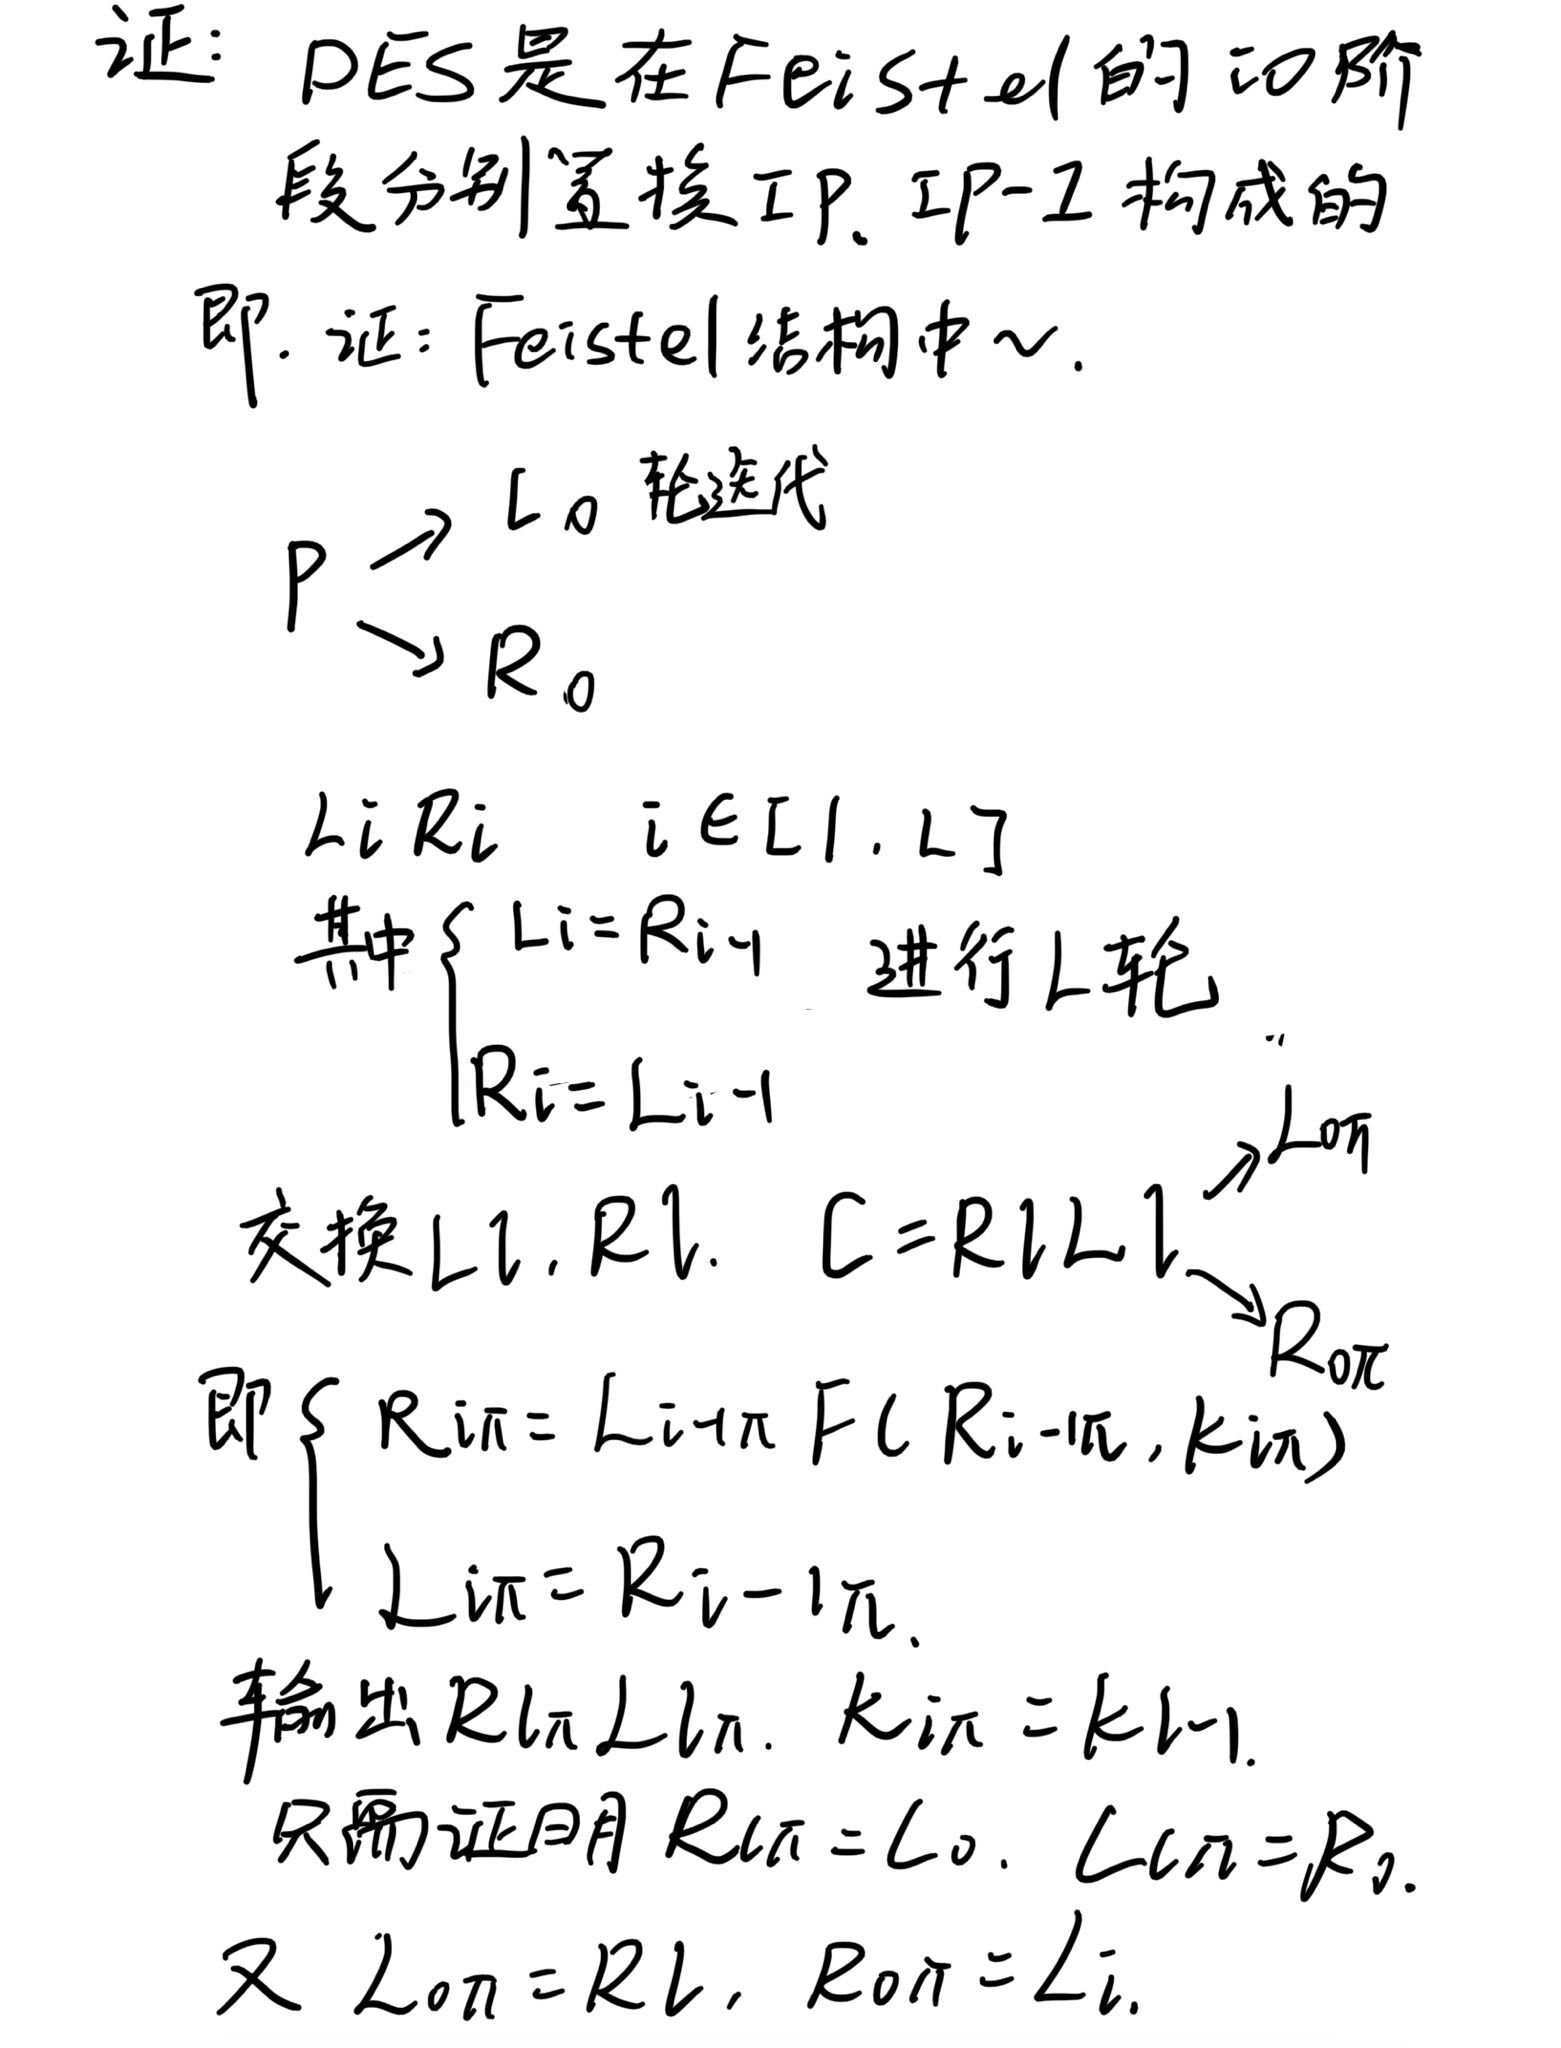 证: DES是在Feistel的io阶
段分别置换IP、IP-1构成的
即. 证: Feistel结构中~.
L0 轮迭代
P
R0
Li Ri i∈[1.L]
其中 Li=Ri-1 进行L轮
Ri=Li-1
L0π
交换Ll,Rl. C=RlLl
R0π
即 Riπ=Li-1π F(Ri-1π,kiπ)
Liπ=Ri-1π.
输出RlπLlπ. kiπ=kl-1.
只需证明Rlπ=L0. Llπ=R0.
又 L0π=Rl, R0π=Li.